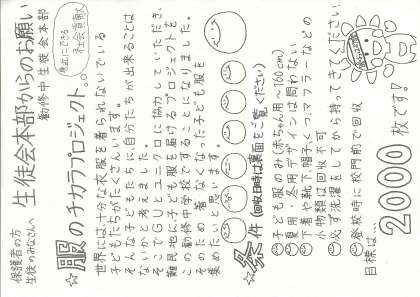 保護者の方
生徒のみなさんへ
生徒会本部からのお願い
勤修中 生徒会本部
身近にできる
社会貢献
☆服のチカラプロジェクト。。
世界には十分な衣服を着られないでいる
子どもたちがたくさんいます。
そんな子どもたちに自分たちが出来ることは
ないかと考えました。
そこでGUとユニクロに協力していただき、
難民地に子ども服を届けるプロジェクトを
この勤修中学校ですることになりました。
そのため 着なくなった子ども服を
集めたいと思います。
☆条件(回収日時は裏面をご覧ください)
子ども服のみ(赤ちゃん用〜160cm)
夏用・冬用・デザインは問わない
下着や靴下、帽子、くつ、マフラーなどの
小物類は回収不可
必ず洗濯をしてから持ってきてください
登校時に校門前で回収
目標は…
2000枚です!